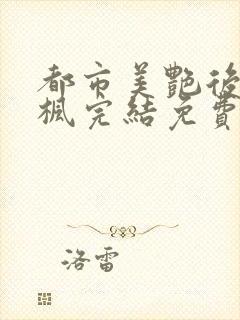 都市美艷後
楓完結免費
洛雷